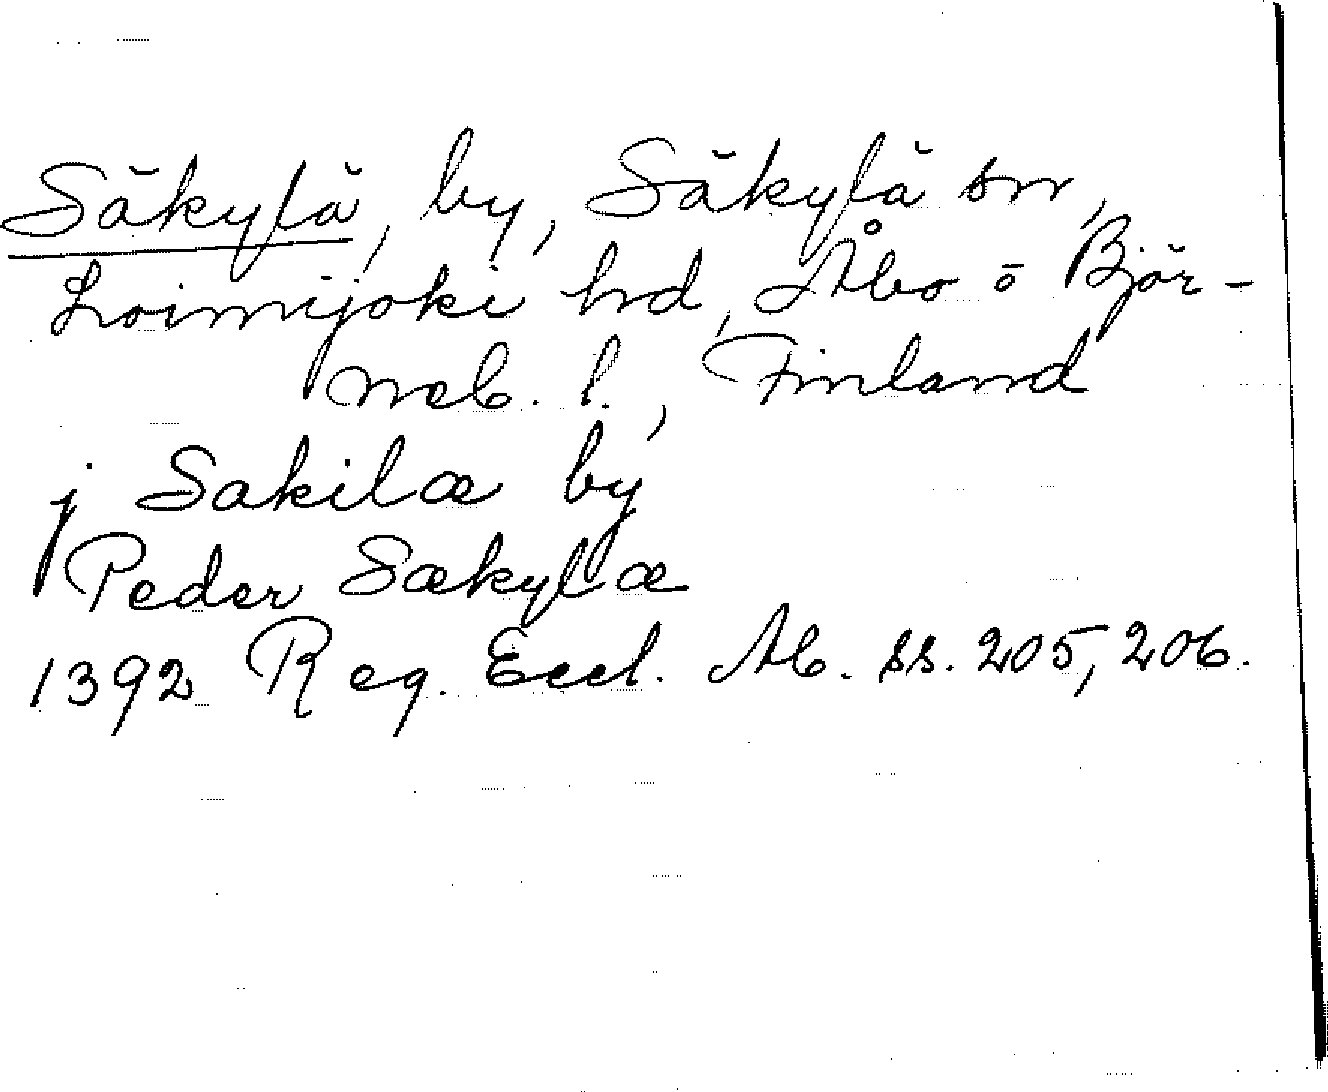 Säkylä, by, Säkylä sn,
Loimijoki hd, Åbo o Björ-
neb. l., Finland
j Sakilæ by
Peder Sækylæ
1392 Reg. Eccl. Ab. ss. 205, 206.